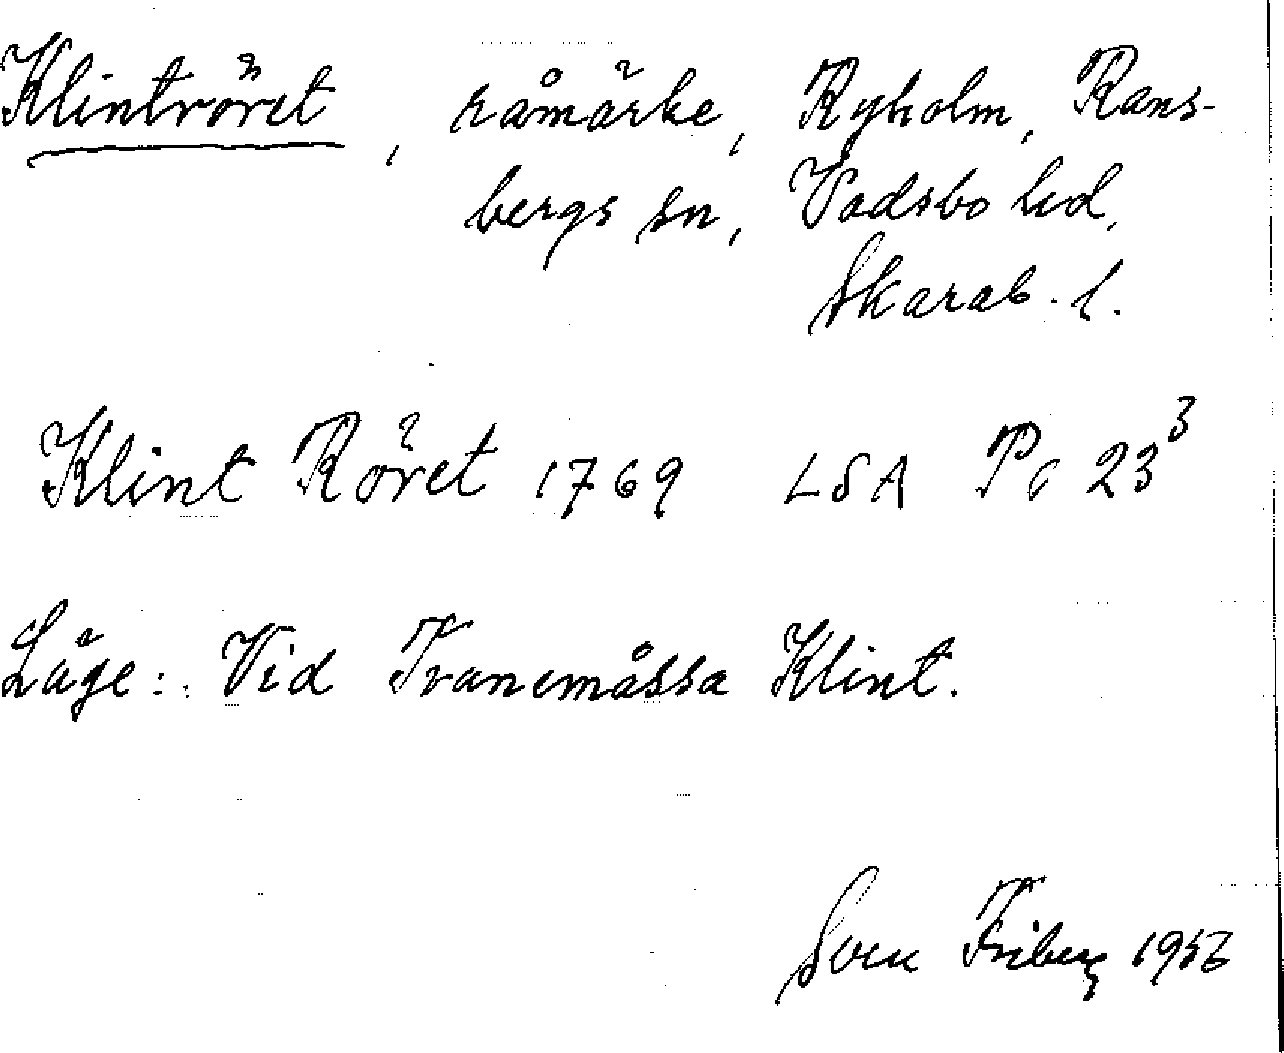 Klintröret, råmärke, Ryholm, Rans-
bergs sn, Vadsbo hd,
Skarab. l.
Klint Röret 1769 LSA Pc 23³
Läge: Vid Tranemåssa Klint.
Sven Friberg 1956